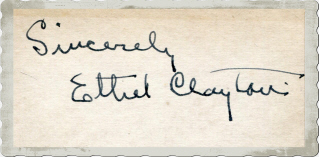 Sincerely
Ethel Clayton